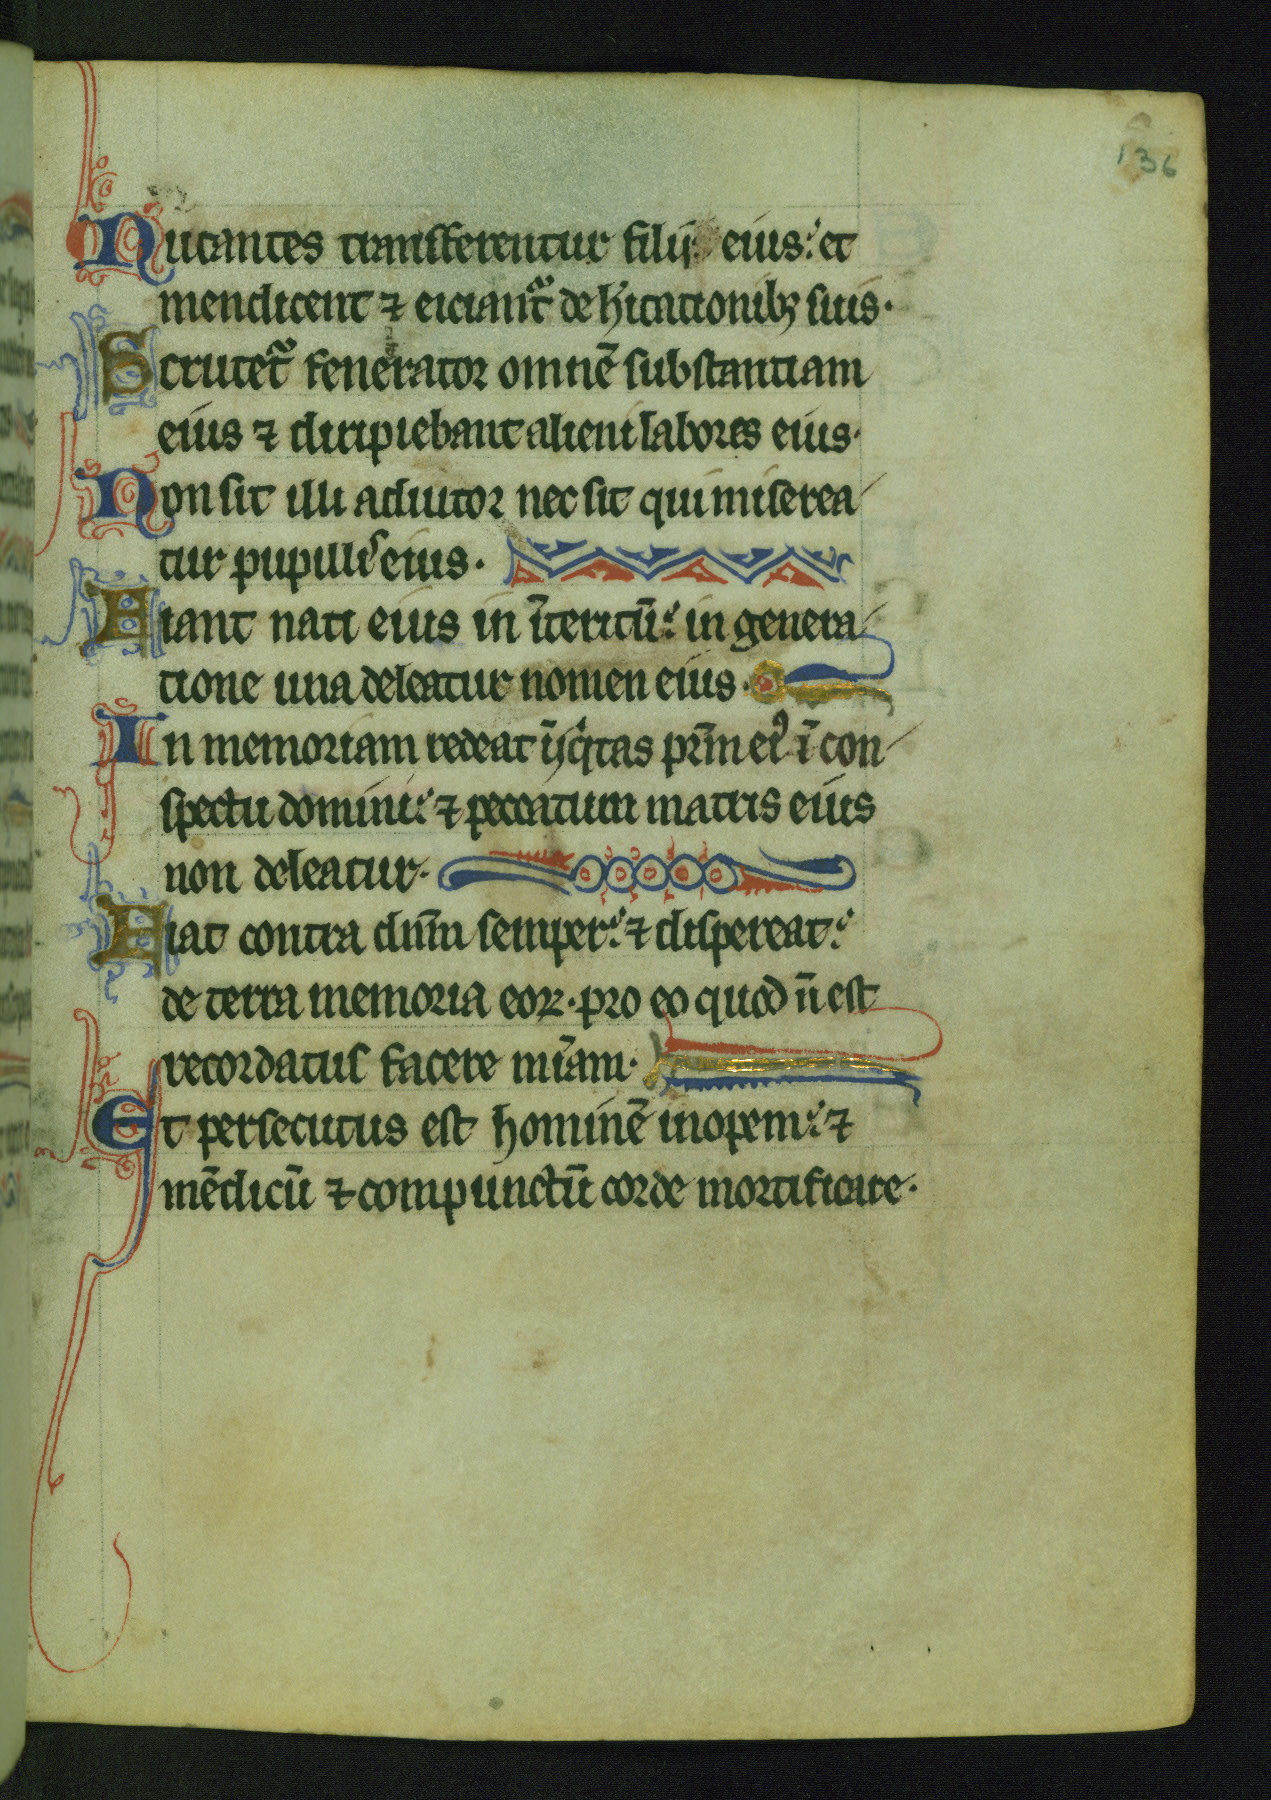 136
Nutantes transferentur filij eius: et
mendicent ⁊ eiciant᷑ de hi̇tationib; suis.
Scrutet᷑ fenerator omnē substantiam
eius ⁊ diripiebant alieni labores eius.
Non sit illi adiutor nec sit qui miserea
tur pupillis eius.
Fiant nati eius in īteritū: in genera
tione una deleatur nomen eius.
In memoriam redeat īiqͥtas pr̄m eiꝰ ī con
spectu domini: ⁊ peccatum matris eius
non deleatur.
Fiat contra dn̄m semper: ⁊ dispereat:
de terra memoria eoꝝ. pro eo quod n̄ est
recordatus facere mīam.
Et persecutus est hominē inopem: ⁊
mēdicū ⁊ compunctū corde mortificare.